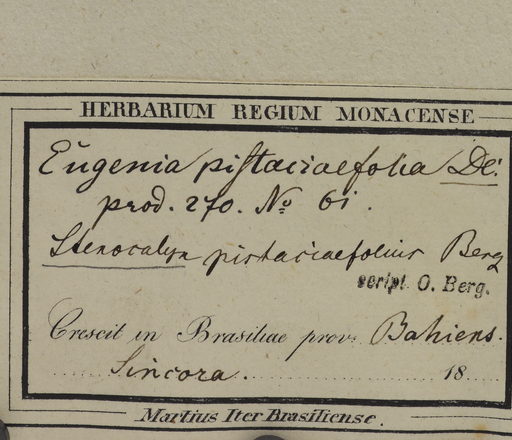 HERBARIUM REGIUM MONACENSE
Eugenia pistaciaefolia DC.
prod. 270. No 61.
Stenocalyx pistaciaefolius Berg
script. O. Berg.
Crescit in Brasiliae prov. Bahiens.
Sincora. 18
Martius Iter Brasiliense.